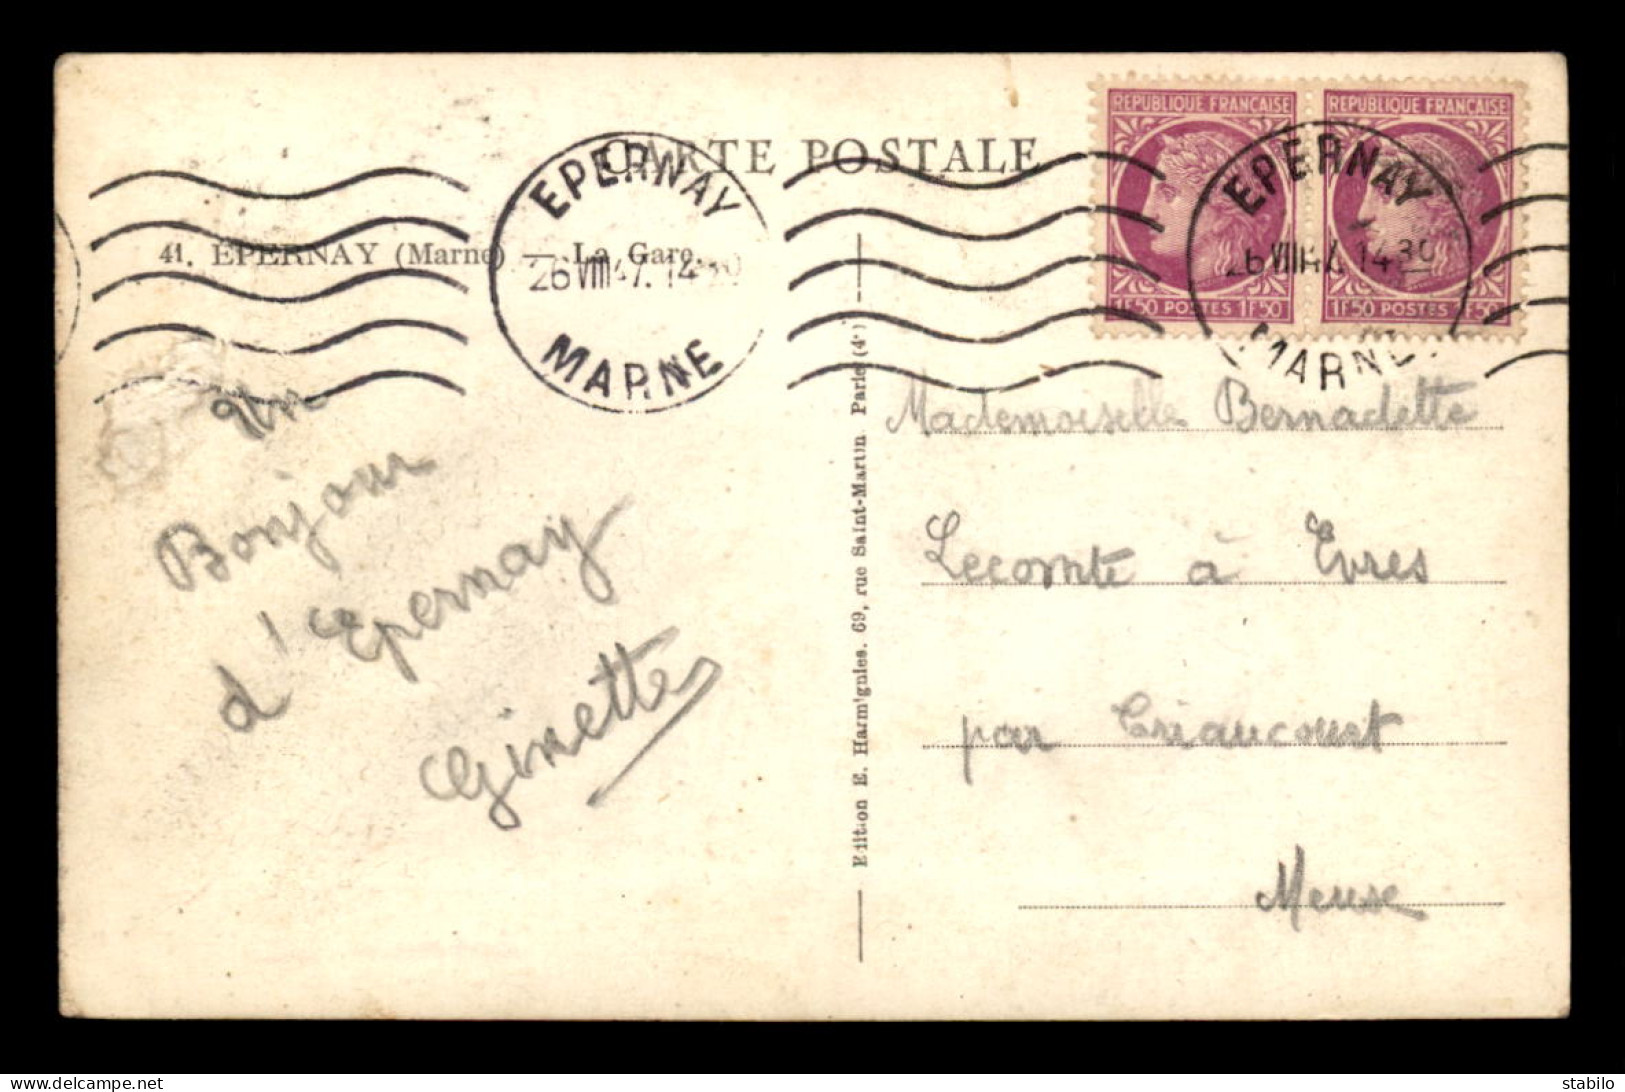 CARTE POSTALE
41. ÉPERNAY (Marne) — La Gare.
EPERNAY
26 VIII 47. 14 30
MARNE
REPUBLIQUE FRANÇAISE
1F50 POSTES 1F50
REPUBLIQUE FRANÇAISE
1F50 POSTES 1F50
EPERNAY
26 VIII 47. 14 30
MARNE
Un
Bonjour
d'Epernay
Ginette
Edition E. Harmignies. 69, rue Saint-Martin Paris (4e)
Mademoiselle Bernadette
Lecomte à Evres
par Triaucourt
Meuse
stabilo
delcampe.net